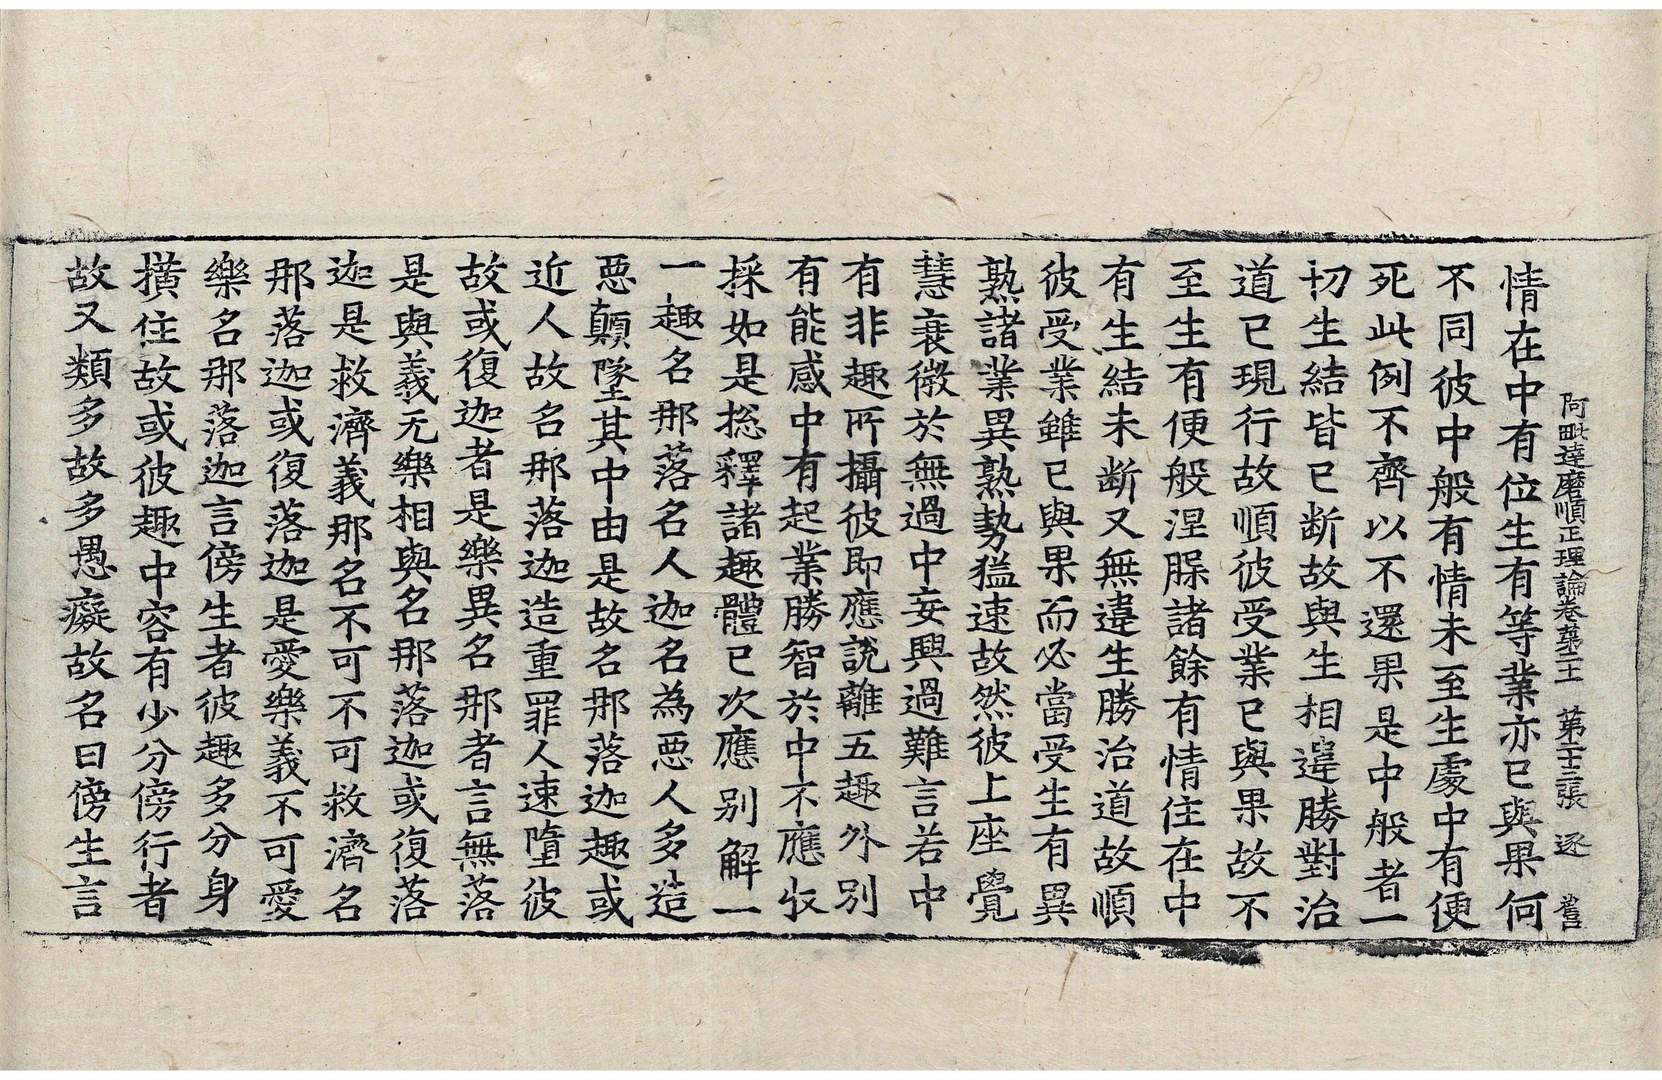 阿毗達磨順正理論卷第二十一 第十三張 逐
情在中有位生有等業亦已與果何
不同彼中般有情未至生處中有便
死此例不齊以不還果是中般者一
切生結皆已断故與生相違勝對治
道已現行故順彼受業已與果故不
至生有便般涅槃諸餘有情住在中
有生結未断又無違生勝治道故順
彼受業雖已與果而必當受生有異
熟諸業異熟勢猛速故然彼上座覺
慧衰微於無過中妄興過難言若中
有非趣所攝彼即應說離五趣外別
有能感中有起業勝智於中不應收
採如是揔釋諸趣體已次應別解一
一趣名那落名人迦名為惡人多造
惡顛墜其中由是故名那落迦趣或
近人故名那落迦造重罪人速墮彼
故或復迦者是樂異名那者言無落
是與義无樂相與名那落迦或復落
迦是救濟義那名不可不可救濟名
那落迦或復落迦是愛樂義不可愛
樂名那落迦言傍生者彼趣多分身
橫住故或彼趣中容有少分傍行者
故又類多故多愚癡故名曰傍生言